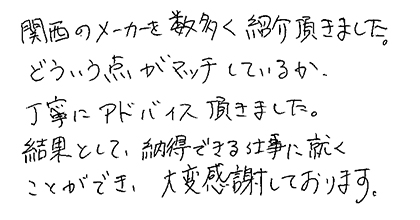 関西のメーカーを数多く紹介頂きました。
どういう点がマッチしているか、
丁寧にアドバイス頂きました。
結果として、納得できる仕事に就く
ことができ、大変感謝しております。